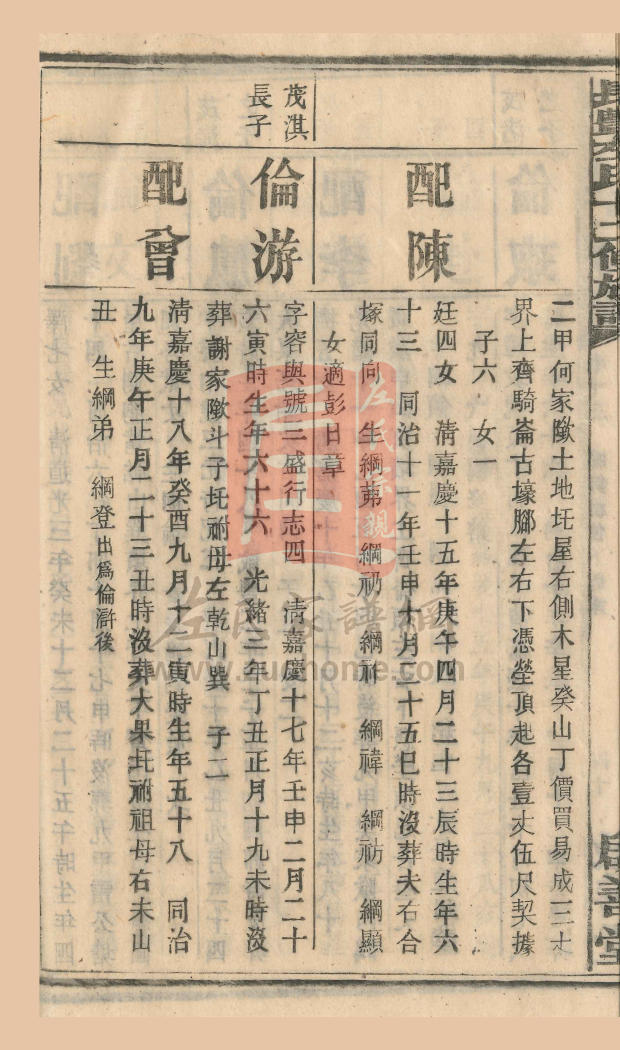 二甲何家墩土地圫屋右側木星癸山丁價買易成三土
界上齊騎崙古壕腳左右下憑塋頂起各壹丈伍尺契據
子六 女一
配陳
廷四女 清嘉慶十五年庚午四月二十三辰時生年六
十三 同治十一年壬申十月二十五巳時沒葬夫右合
塚同向 生綱茀 綱礽 綱祚 綱禕 綱祊 綱顯
女適彭日章
茂淇
長子
倫游
字容與號三盛行志四 清嘉慶十七年壬申二月二十
六寅時生年六十六 光緒三年丁丑正月十九未時沒
葬謝家墩斗子圫祔母左乾山巽 子二
配曾
清嘉慶十八年癸酉九月十二寅時生年五十八 同治
九年庚午正月二十三丑時沒葬大果圫祔祖母右未山
丑 生綱弟 綱登出爲倫滸後
左氏宗親
www.zuohome.com